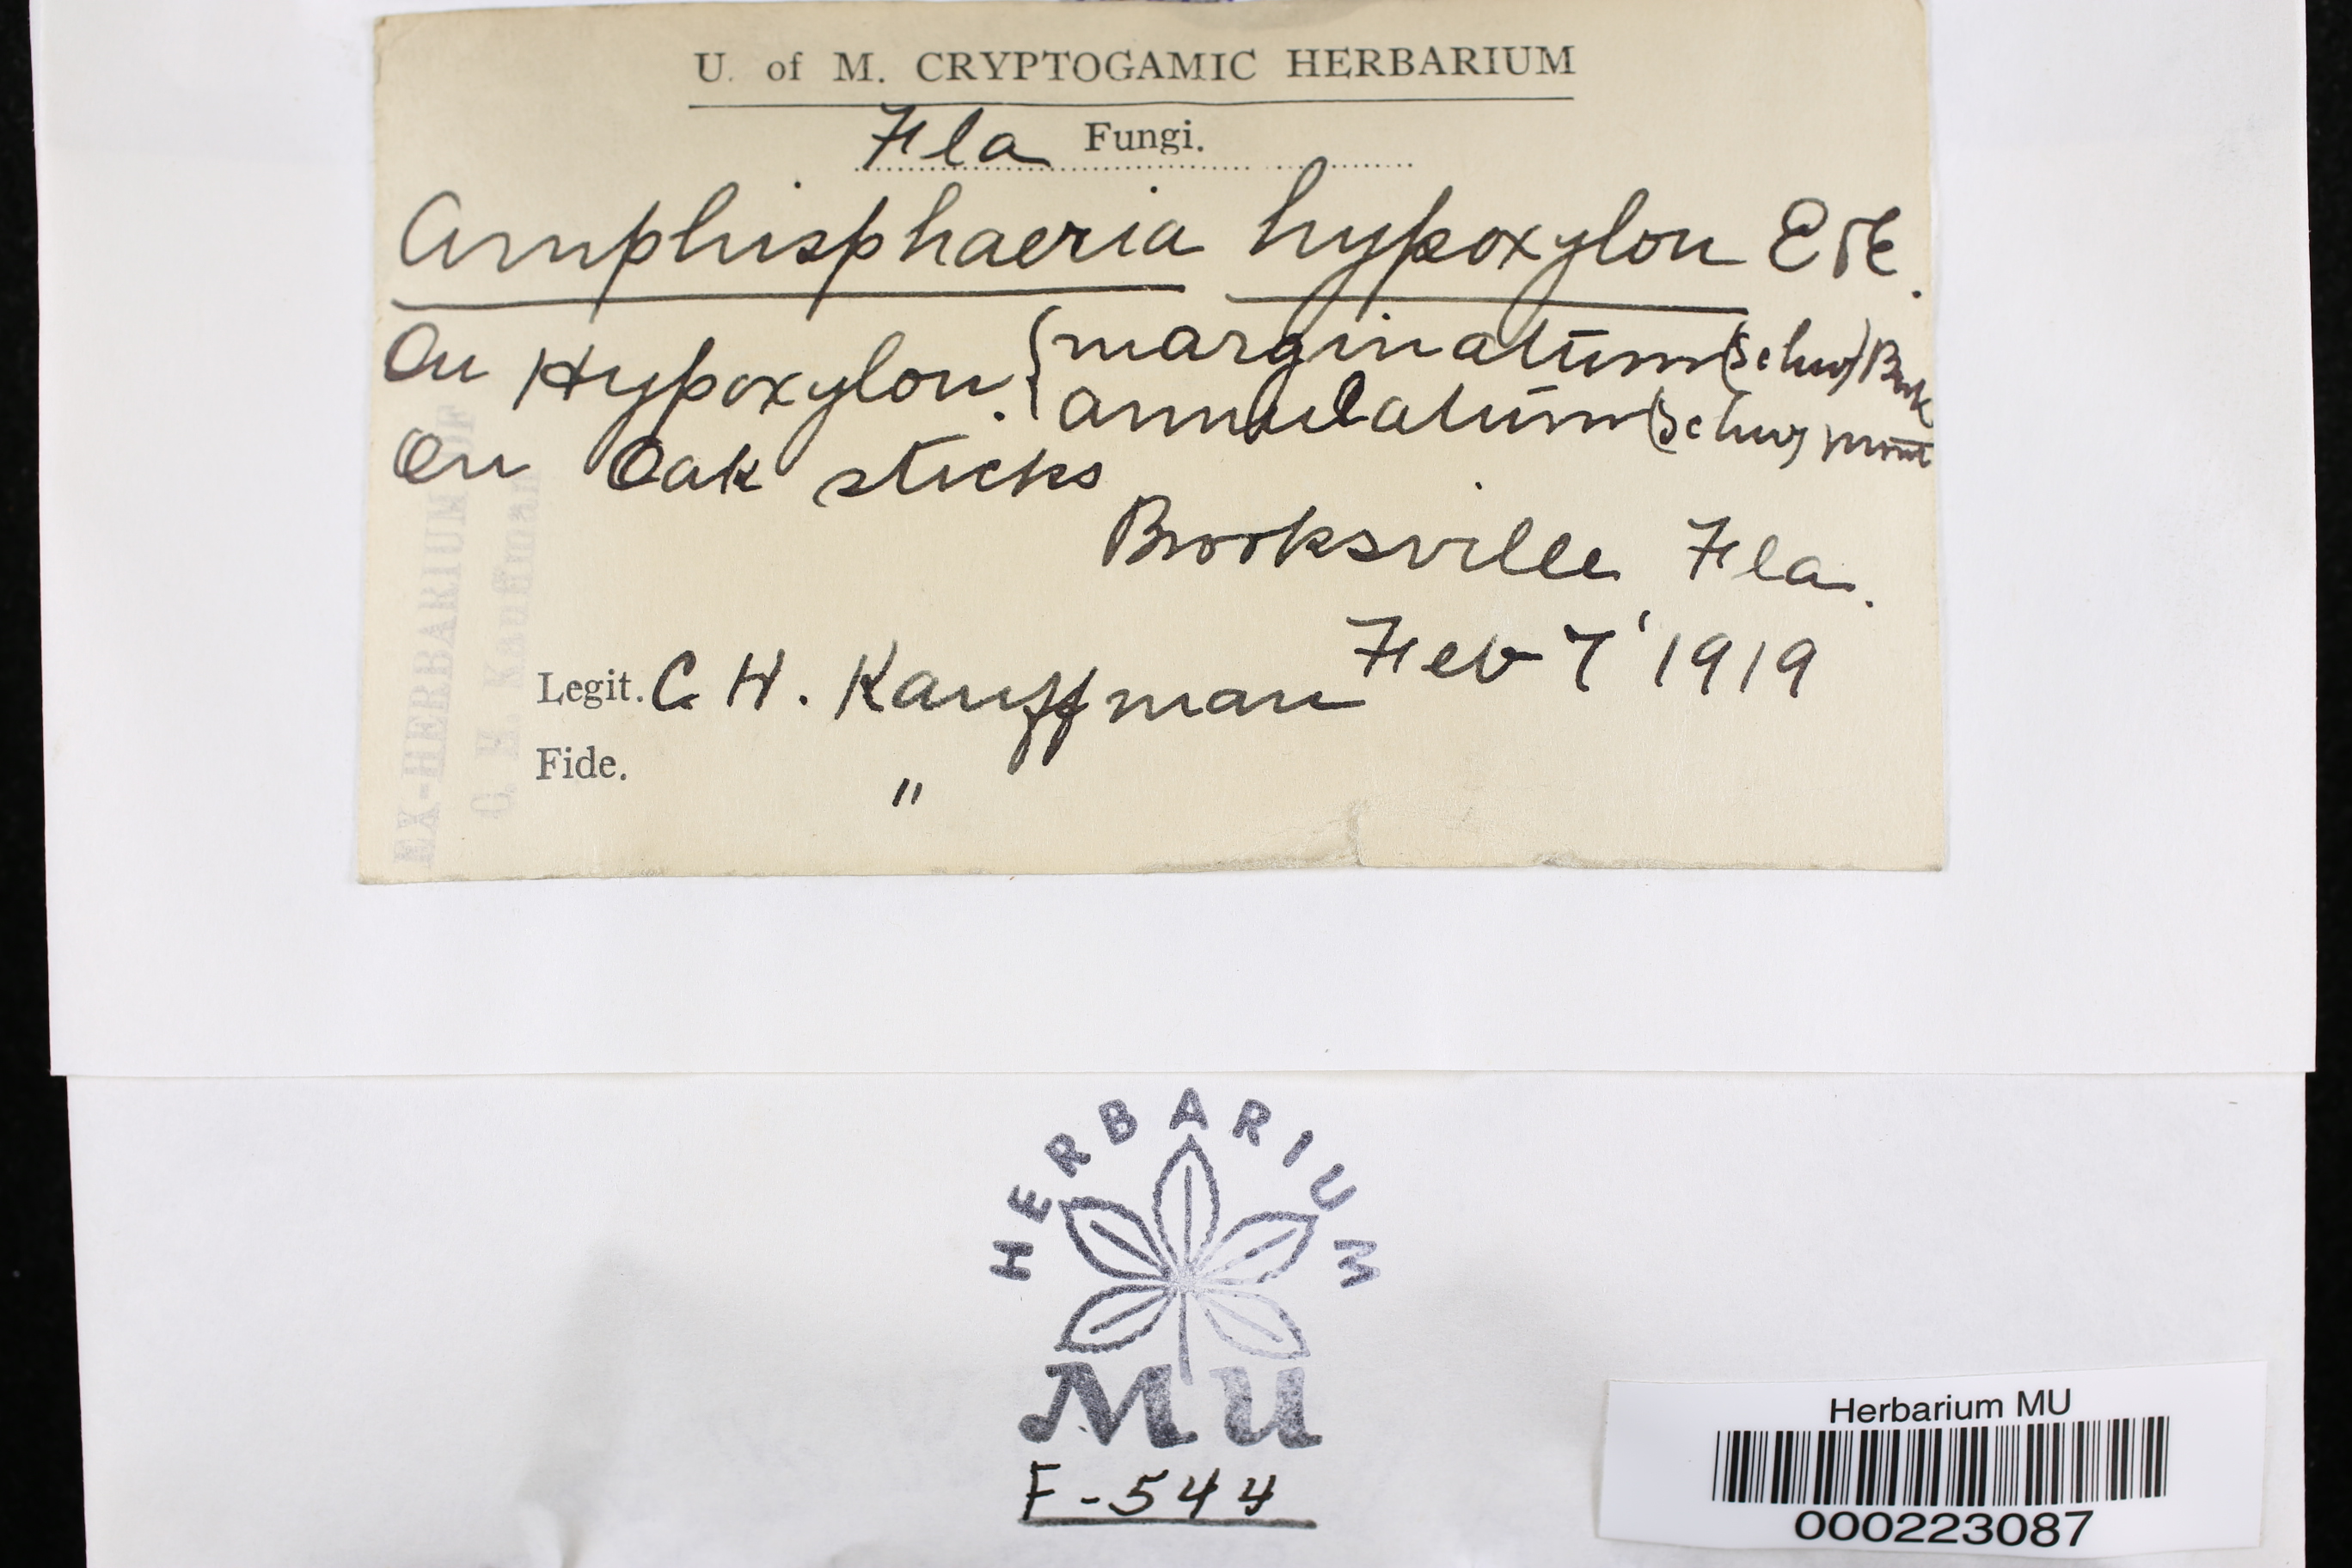 U. of M. CRYPTOGAMIC HERBARIUM
Fla Fungi.
Amphisphaeria hypoxylon E & E.
On Hypoxylon. { marginatum (Schw) Berk
annulatum (Schw) Mont
On Oak sticks
Brooksville Fla.
Feb 7' 1919
Legit. C. H. Kauffman
Fide. "
EX-HERBARIUM OF
C. H. Kauffman
HERBARIUM
MU
F-544
Herbarium MU
000223087